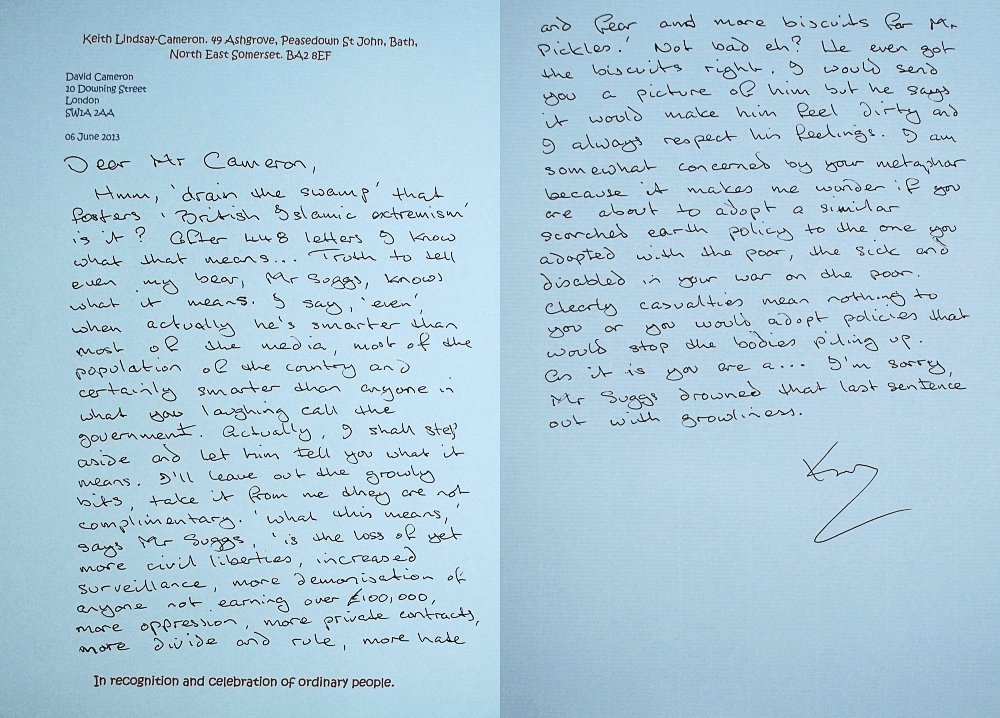 Keith Lindsay-Cameron. 49 Ashgrove, Peasedown St John, Bath,
North East Somerset. BA2 8EF
David Cameron
10 Downing Street
London
SW1A 2AA
06 June 2013
Dear Mr Cameron,
Hmm, 'drain the swamp' that
fosters 'British Islamic extremism'
is it? After 448 letters I know
what that means... Truth to tell
even my bear, Mr Suggs, knows
what it means. I say, 'even',
when actually he's smarter than
most of the media, most of the
population of the country and
certainly smarter than anyone in
what you laughing call the
government. Actually, I shall step
aside and let him tell you what it
means. I'll leave out the growly
bits, take it from me they are not
complimentary. 'What this means,'
says Mr Suggs, 'is the loss of yet
more civil liberties, increased
surveillance, more demonisation of
anyone not earning over £100,000,
more oppression, more private contracts,
more divide and rule, more hate
In recognition and celebration of ordinary people.
and fear and more biscuits for Mr
Pickles.' Not bad eh? He even got
the biscuits right. I would send
you a picture of him but he says
it would make him feel dirty and
I always respect his feelings. I am
somewhat concerned by your metaphor
because it makes me wonder if you
are about to adopt a similar
scorched earth policy to the one you
adopted with the poor, the sick and
disabled in your war on the poor.
Clearly casualties mean nothing to
you or you would adopt policies that
would stop the bodies piling up.
As it is you are a... I'm sorry,
Mr Suggs drowned that last sentence
out with growliness.